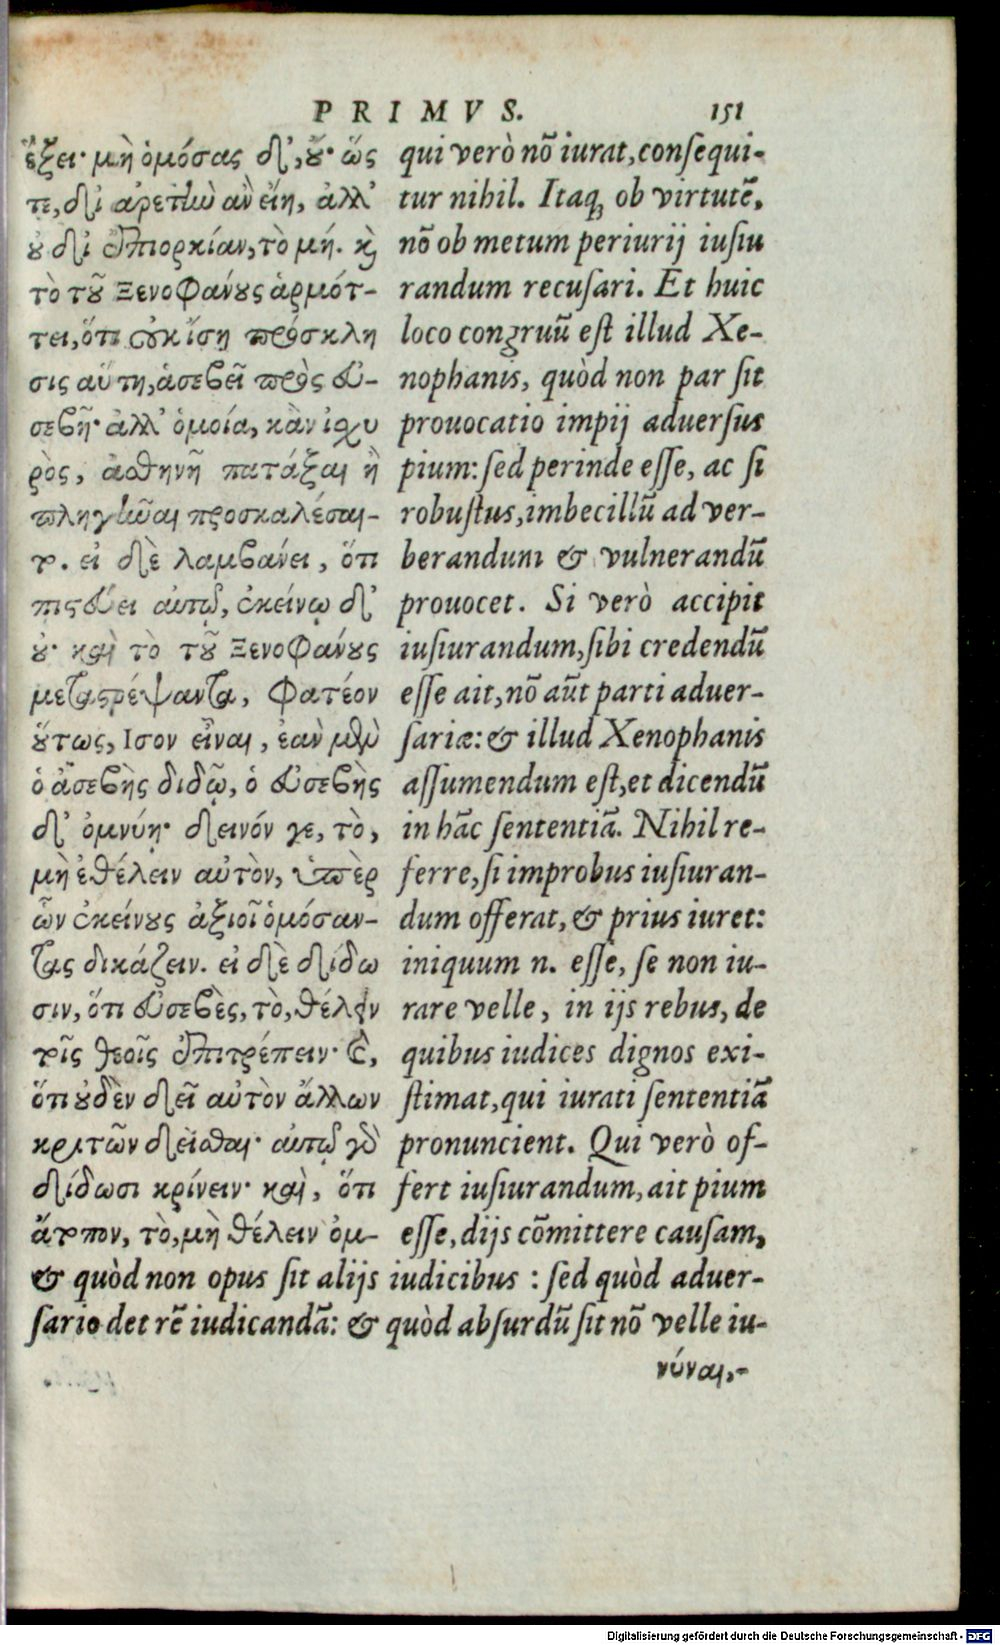 PRIMVS. 151
ἕξει· μὴ ὀμόσας δ', οὔ· ὥς
τε, δι' ἀρετὴν ἂν εἴη, ἀλλ'
οὐ δι' ἐπιορκίαν, τὸ μή. καὶ
τὸ τοῦ Ξενοφάνους ἁρμότ-
τει, ὅτι οὐκ ἴση πρόσκλη
σις αὕτη, ἀσεβεῖ πρὸς εὐ-
σεβῆ· ἀλλ' ὁμοία, κἂν ἰσχυ
ρὸς, ἀσθηνῆ πατάξαι ἢ
πληγῆναι προσκαλέσαι-
το. εἰ δὲ λαμβάνει, ὅτι
πιστεύει αὑτῷ, ἐκείνῳ δ'
οὔ· καὶ τὸ τοῦ Ξενοφάνους
μεταστρέψαντα, φατέον
οὕτως, Ισον εἶναι, ἐὰν μὲν
ὁ ἀσεβὴς διδῷ, ὁ εὐσεβὴς
δ' ὀμνύῃ· δεινόν γε, τὸ,
μὴ ἐθέλειν αὐτὸν, ὑπὲρ
ὧν ἐκείνους ἀξιοῖ ὀμόσαν-
τας δικάζειν. εἰ δὲ δίδω
σιν, ὅτι εὐσεβὲς, τὸ, θέλειν
τοῖς θεοῖς ἐπιτρέπειν· καὶ,
ὅτι οὐδὲν δεῖ αὐτὸν ἄλλων
κριτῶν δεῖσθαι· αὐτῷ γὰρ
δίδωσι κρίνειν· καὶ, ὅτι
ἄτοπον, τὸ, μὴ θέλειν ὀμ-
qui verò nõ iurat, consequi-
tur nihil. Itaq; ob virtutẽ,
nõ ob metum periurij iusiu
randum recusari. Et huic
loco congruũ est illud Xe-
nophanis, quòd non par sit
prouocatio impij aduersus
pium: sed perinde esse, ac si
robustus, imbecillũ ad ver-
berandum & vulnerandũ
prouocet. Si verò accipit
iusiurandum, sibi credendũ
esse ait, nõ aũt parti aduer-
sariæ: & illud Xenophanis
assumendum est, et dicendũ
in hãc sententiã. Nihil re-
ferre, si improbus iusiuran-
dum offerat, & prius iuret:
iniquum n. esse, se non iu-
rare velle, in ijs rebus, de
quibus iudices dignos exi-
stimat, qui iurati sententiã
pronuncient. Qui verò of-
fert iusiurandum, ait pium
esse, dijs cõmittere causam,
& quòd non opus sit alijs iudicibus : sed quòd aduer-
sario det rẽ iudicandã: & quòd absurdũ sit nõ velle iu-
νύναι,-
Digitalisierung gefördert durch die Deutsche Forschungsgemeinschaft - DFG